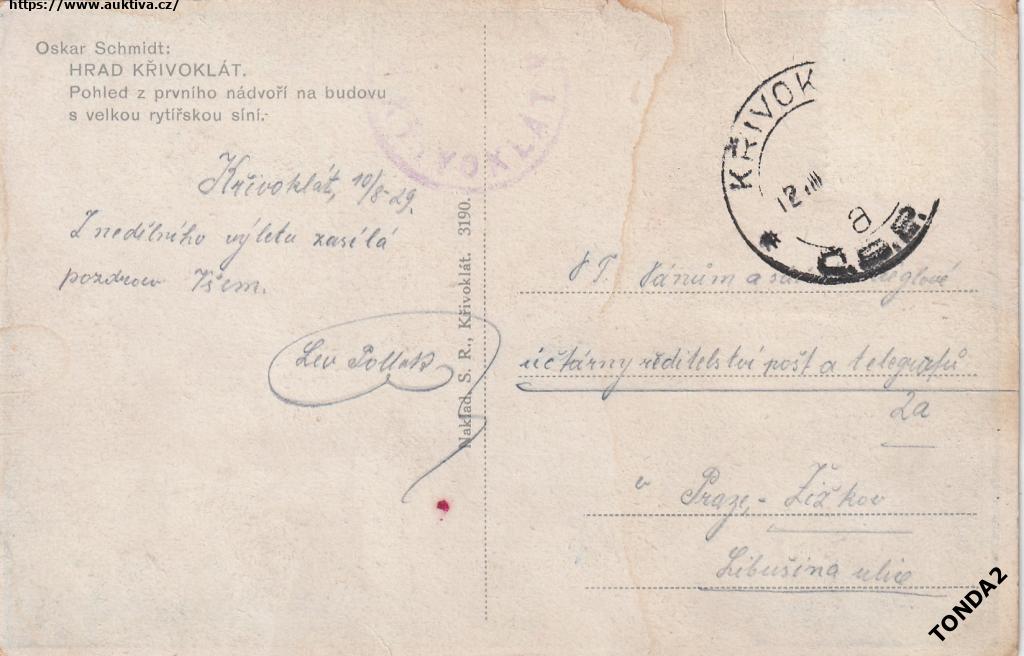 https://www.auktiva.cz/
Oskar Schmidt:
HRAD KŘIVOKLÁT.
Pohled z prvního nádvoří na budovu
s velkou rytířskou síní.
Křivoklát, 10/8-29.
Z nedělního výletu zasílá
pozdrav Všem.
Lev Pollak
Naklad. S. R., Křivoklát. 3190.
KŘIVOKLÁT
KŘIVOK
12.
a
Č.S.R.
Pánům a
účtárny ředitelství pošt a telegrafů
2a
v Praze,- Žižkov
Libušina ulice
TONDA2